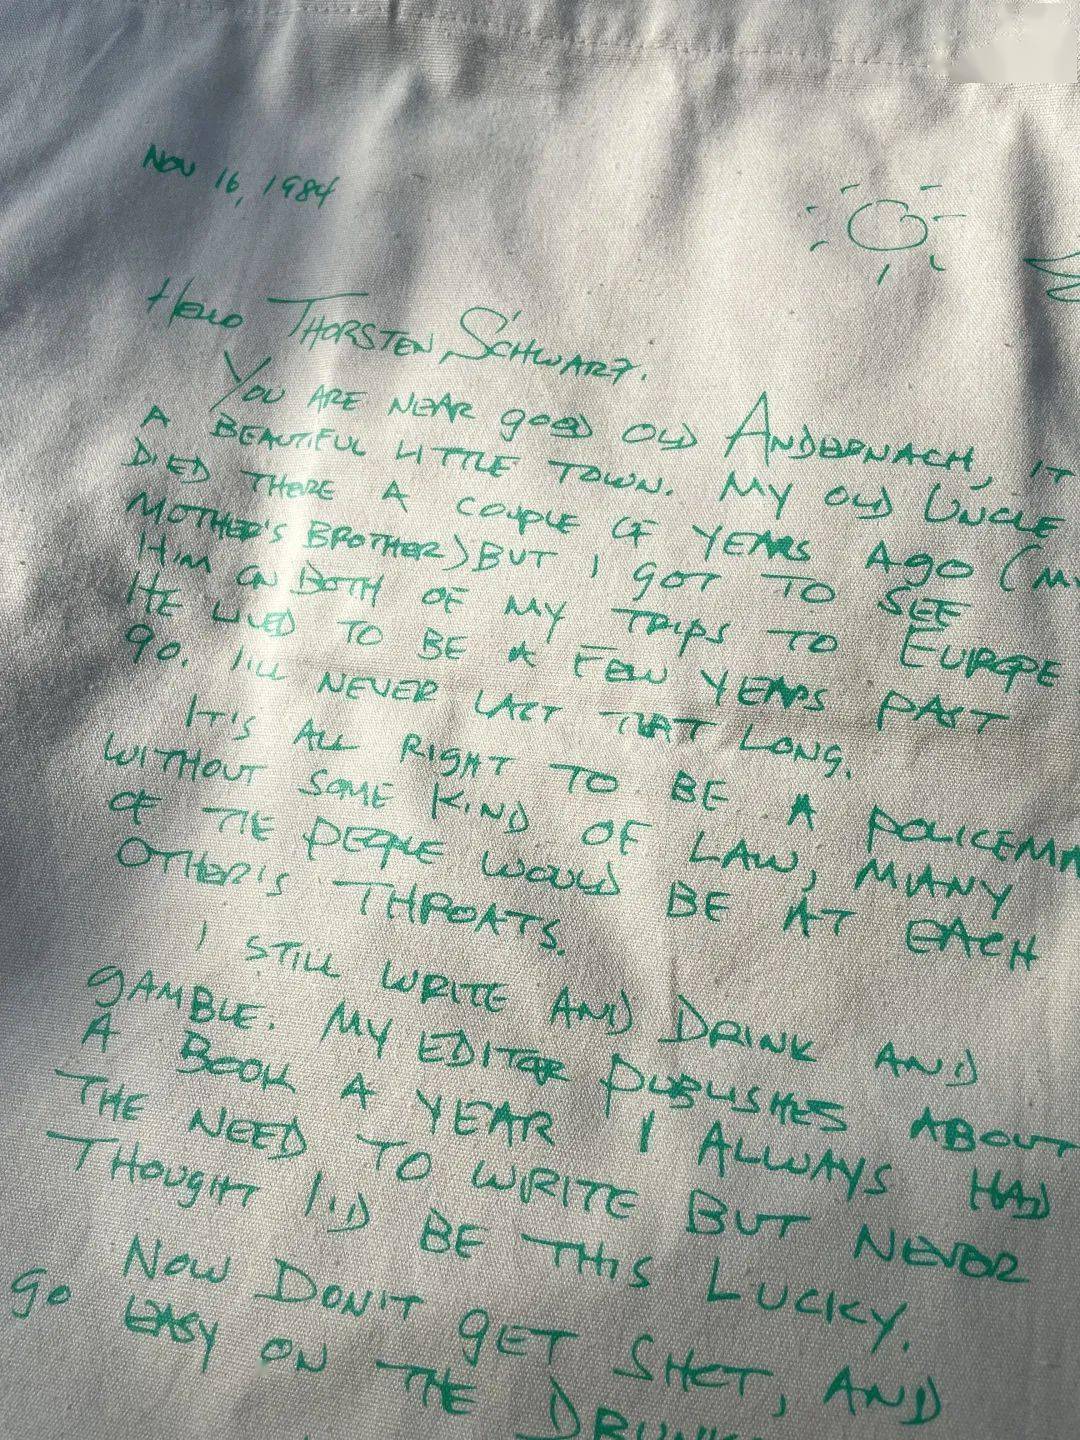 Nov 16, 1984
Hello THORSTEN SCHWARZ.
YOU ARE NEAR gOOD OLD ANDERNACH, IT
A BEAUTIFUL LITTLE TOWN. MY OLD UNCLE
DIED THERE A COUPLE OF YEARS AGO (MY
MOTHER'S BROTHER) BUT I gOT TO SEE
HIM ON BOTH OF MY TRIPS TO EUROPE
HE LIVED TO BE A FEW YEARS PAST
90. I'LL NEVER LAST THAT LONG.
IT'S ALL RIGHT TO BE A POLICEMA
WITHOUT SOME KIND OF LAW, MANY
OF THE PEOPLE WOULD BE AT EACH
OTHER'S THROATS.
I STILL WRITE AND DRINK AND
gAMBLE. MY EDITOR PUBLISHES ABOUT
A BOOK A YEAR I ALWAYS HAD
THE NEED TO WRITE BUT NEVER
THOUGHT I'D BE THIS LUCKY.
NOW DON'T gET SHOT, AND
gO EASY ON THE DRUNK